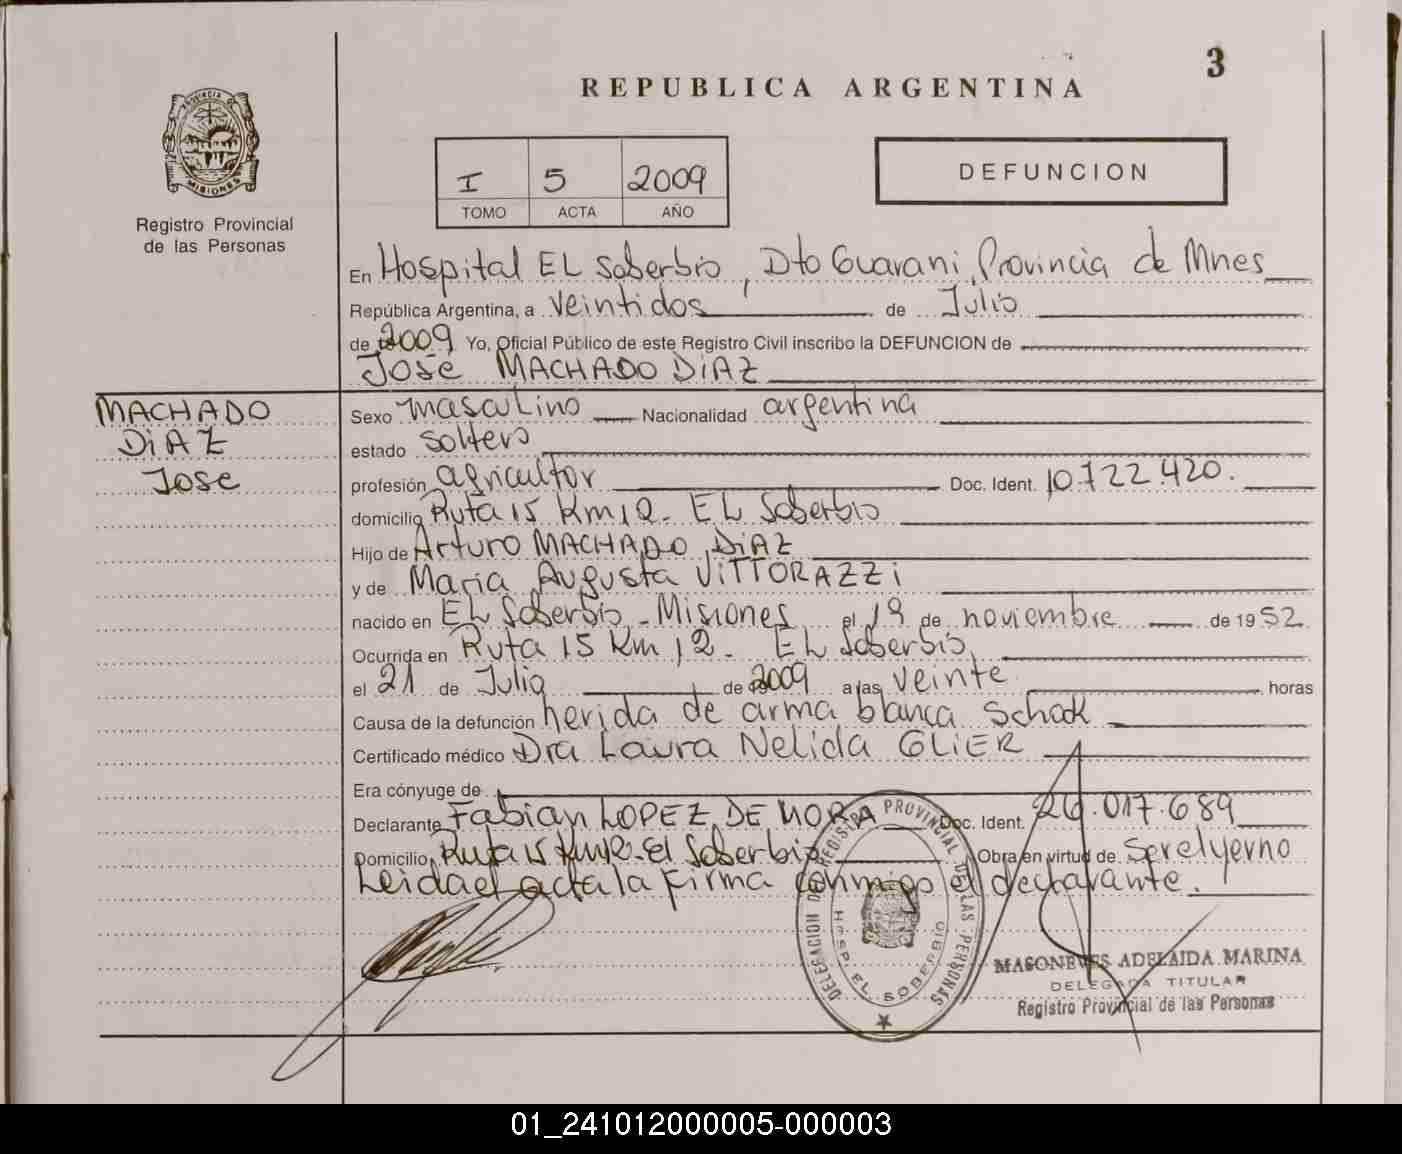 3
REPUBLICA ARGENTINA
PROVINCIA DE
MISIONES
Registro Provincial
de las Personas
I 5 2009
TOMO ACTA AÑO
DEFUNCION
En Hospital EL Soberbio, Dto Guarani, Provincia de Mnes
República Argentina, a veintidos de Julio
de 2009 Yo, Oficial Público de este Registro Civil inscribo la DEFUNCION de
José MACHADO DiAZ
MACHADO
DiAZ
Jose
Sexo masculino Nacionalidad argentina
estado Soltero
profesión agricultor Doc. Ident. 10.722.420.
domicilio Ruta 15 Km 12. EL Soberbio
Hijo de Arturo MACHADO DiAZ
y de Maria Augusta ViTTORAZZi
nacido en EL Soberbio - Misiones el 19 de noviembre de 1952
Ocurrida en Ruta 15 Km 12. EL Soberbio,
el 21 de Julio de 2009 a las veinte horas
Causa de la defunción herida de arma blanca Schok
Certificado médico Dra Laura Nelida GLiER
Era cónyuge de
Declarante Fabian LOPEZ DE MORA Doc. Ident. 26.017.689
Domicilio Ruta 15 Km 12. El Soberbio Obra en virtud de Ser el yerno
Leida el acta la firma conmigo el declarante.
DELEGACION DEL REGISTRO PROVINCIAL DE LAS PERSONAS
HOSP. EL SOBERBIO
MASONEVES ADELAIDA MARINA
DELEGADA TITULAR
Registro Provincial de las Personas
01_241012000005-000003